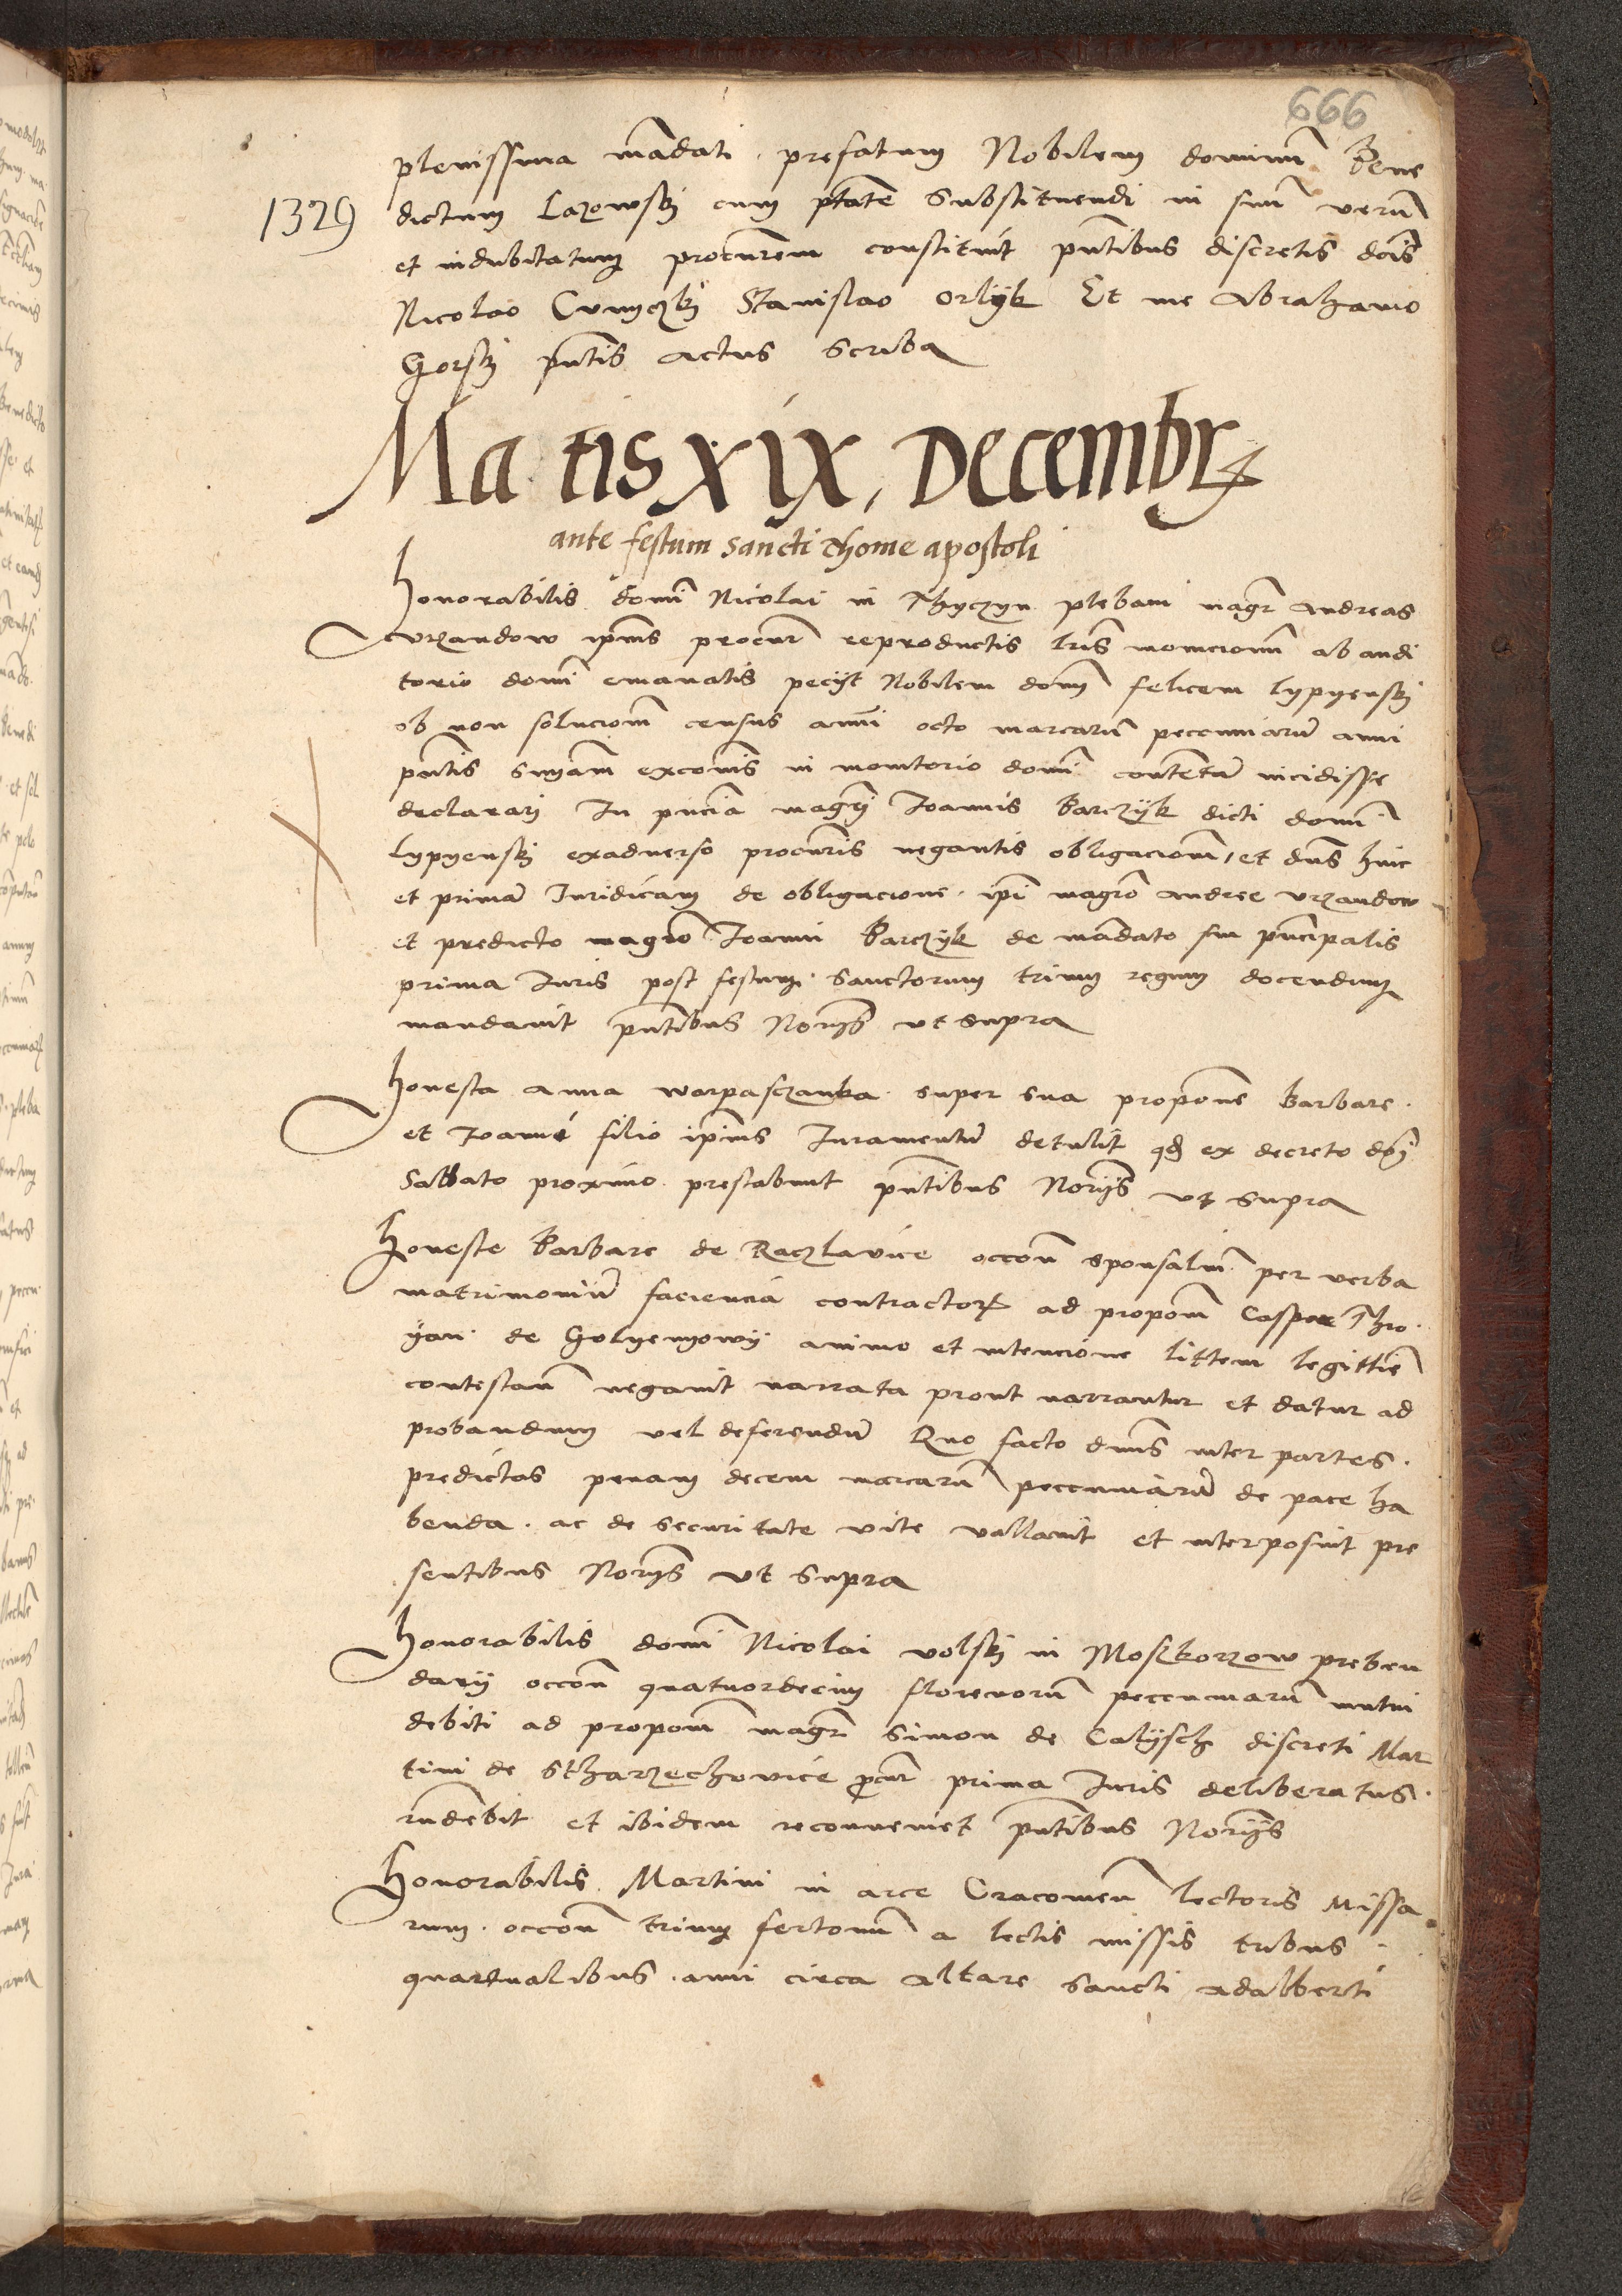 666
plenissima mādati prefatum Nobilem dominū Bene
1329
dictum Lazowskj cum ptatē Substituendi in suū verū
et indubitatum procurem constituit pntibus discretis dnis
Nicolao Stanislao orlyk Et me Abrahamo
Gorskj pntis actus scriba
Martis xix, Decembr
ante festum sancti Thome apostoli
Honorabilis domi Nicolai in Thyczyn plebani magr Andreas
vrzandow ipius procur reproductis lris monicionū ab audi
torio domi emanatis pecijt Nobilem dom felicem Lypyenskj
ob non solucionem census anni octo marcarū pecuniarū anni
pntis snyam excomis in monitorio domi contentā incidisse
declararj In pncia magrj Joannis Barczyk dicti domi
Lypyenskj exadverso procuris negantis obligacionem, et dns huic
et primā Juridicam de obligacione ipi magro Andree vrzandow
et predicto magro Joanni Barczyk de mādato sui pncipalis
prima Juris post festum sanctorum trium regum docendum
mandavit pntibus Norijs vt supra
Honesta Anna warpasczanka super sua propone Barbare
et Joanne filio ipius Juramentū detulit qd ex decreto dnj
Sabbato proximo prestabunt pntibus Norijs vt supra
Honeste Barbare de Raczlavice occon sponsaliū per verba
matrimoniū faciencia contractor ad propom Caspar Thro
yan de Golyenyowy animo et intencione littem legittie
contestan negavit narrata prout narrantur et datur ad
probandum vel deferendū Quo facto dnus inter partes
predictas penam decem marcarū pecuniarū de pace ha
benda ac de securitate vite vallavit et interposuit pre
sentibus Norijs vt supra
Honorabilis domi Nicolai volskj in Moskorzow preben
darij occon quatuordecim florenorū pecuniarū mutui
debiti ad propom magr Simon de Calysch discreti Mar
tini de Stharzechovice pcur prima Juris deliberatus
rndebit et ibidem reconveniet pntibus Norijs
Honorabilis Martini in arce Cracovien lectoris Missa
rum occon trium fertonū a lectis missis tribus
quartualibus anni circa altare sancti Adalberti